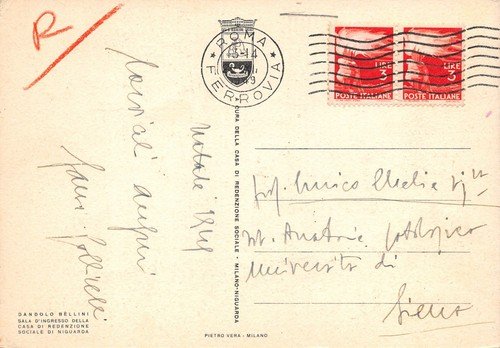 R
ROMA
FERROVIA
LIRE
3
POSTE ITALIANE
LIRE
3
POSTE ITALIANE
Cordiali auguri
Natale 1949
Prof. Enrico
Ist. Anatomia Patologica
Università di
Siena
CURA DELLA CASA DI REDENZIONE SOCIALE - MILANO-NIGUARDA
DANDOLO BELLINI
SALA D'INGRESSO DELLA
CASA DI REDENZIONE
SOCIALE DI NIGUARDA
PIETRO VERA - MILANO